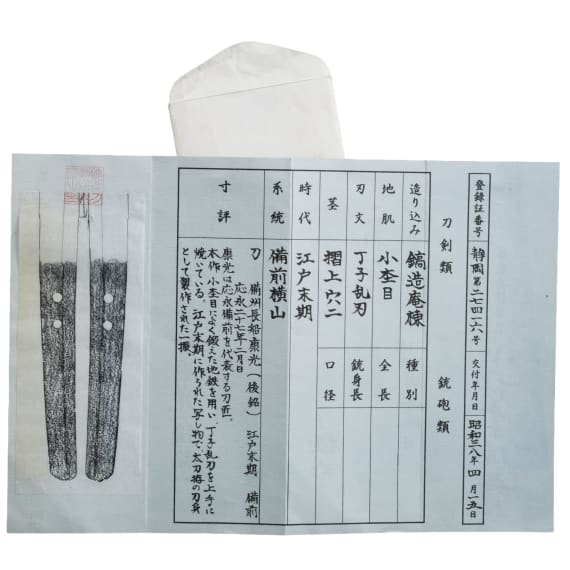 登録証番号 静岡第二七四一二六号 交付年月日 昭和三八年四月一五日
刀剣類 銃砲類
造り込み 鎬造庵棟 種別
地肌 小杢目 全長
刃文 丁子乱刃 銃身長
茎 摺上 穴二 口径
時代 江戸末期
系統 備前横山
寸評
刀 備州長船康光(後銘) 江戸末期 備前
応永二十七年二月日
康光は応永備前を代表する刀匠。
本作、小杢目によく鍛えた地鉄を用い、丁子乱刃を上手に
焼いている。江戸末期に作られた写し物で、太刀拵の刀身
として製作された一振。